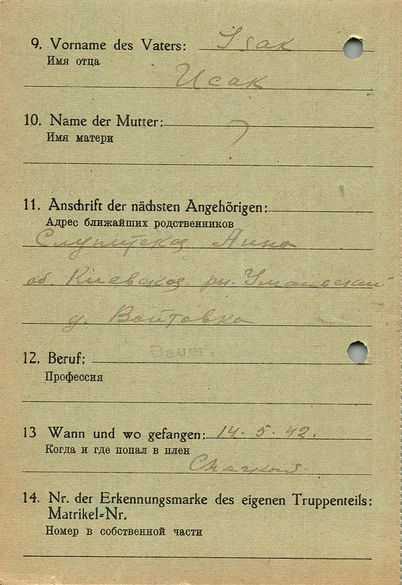 9. Vorname des Vaters: Isak
Имя отца
Исак
10. Name der Mutter: ?
Имя матери
11. Anschrift der nächsten Angehörigen:
Адрес ближайших родственников
Анна
об. Киевская рн. Уманский
д. Войтовка
12. Beruf: Bauer.
Профессия
13 Wann und wo gefangen: 14. 5. 42.
Когда и где попал в плен
14. Nr. der Erkennungsmarke des eigenen Truppenteils:
Matrikel-Nr.
Номер в собственной части